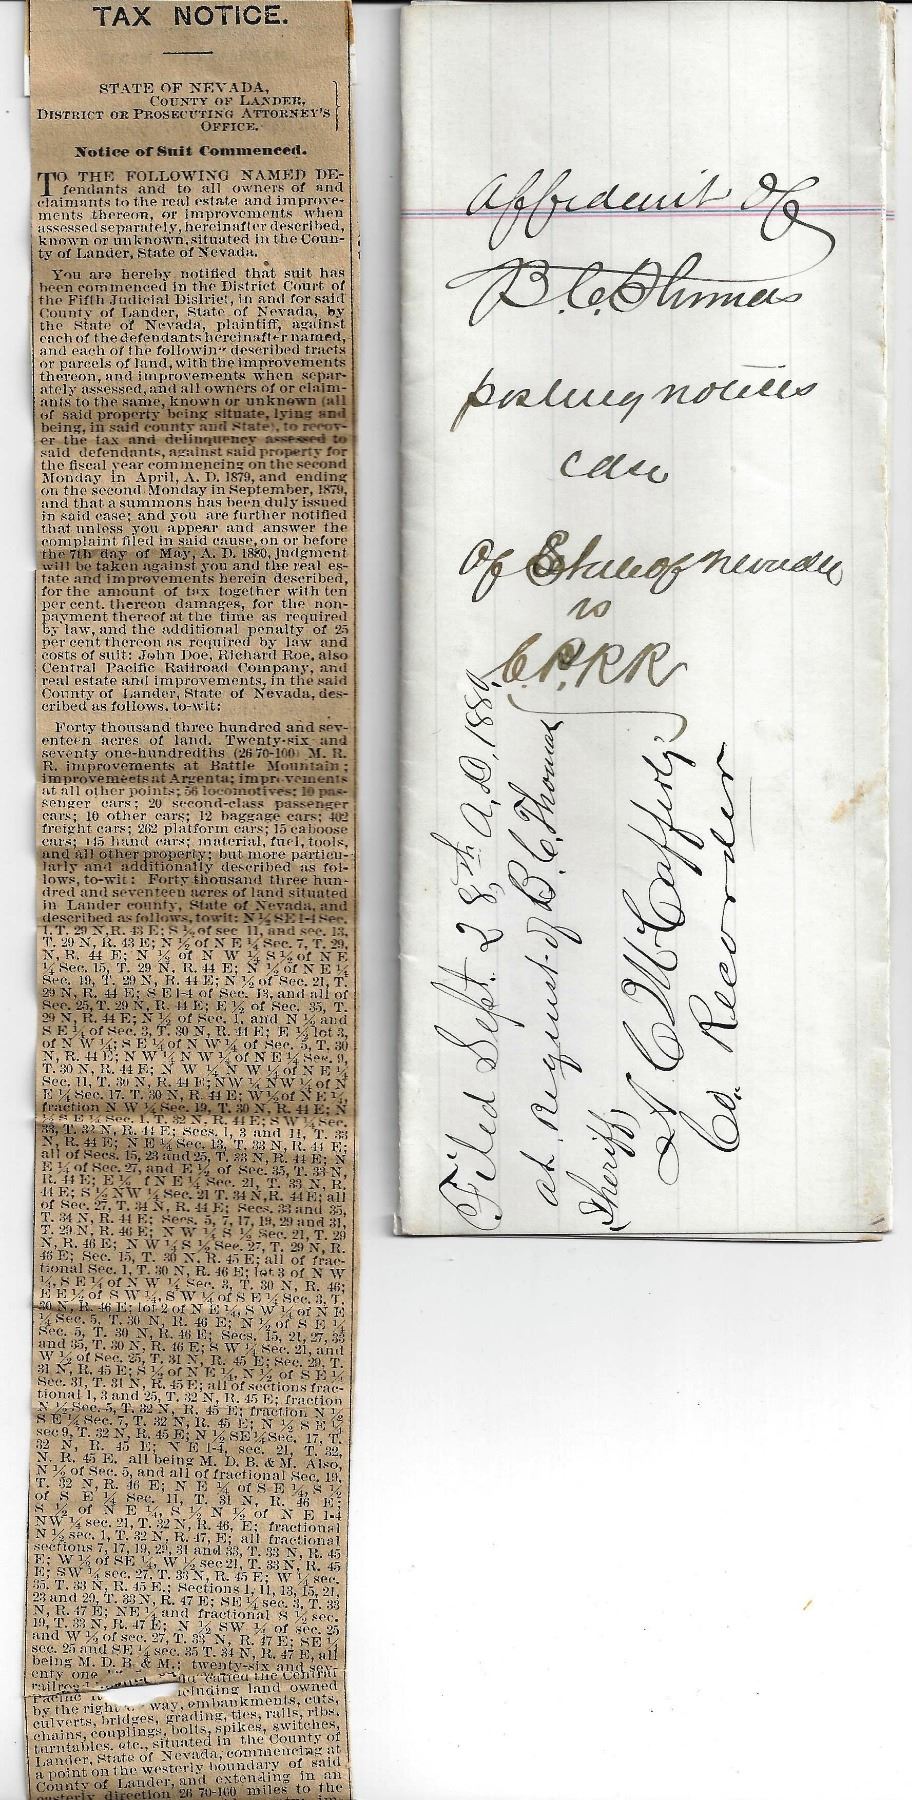 TAX NOTICE.
STATE OF NEVADA,
COUNTY OF LANDER,
DISTRICT OR PROSECUTING ATTORNEY'S
OFFICE.
Notice of Suit Commenced.
TO THE FOLLOWING NAMED DE-
fendants and to all owners of and
claimants to the real estate and improve-
ments thereon, or improvements when
assessed separately, hereinafter described,
known or unknown, situated in the Coun-
ty of Lander, State of Nevada.
You are hereby notified that suit has
been commenced in the District Court of
the Fifth Judicial Disirict, in and for said
County of Lander, State of Nevada, by
the State of Nevada, plaintiff, against
each of the defendants hereinafter named,
and each of the followin- described tracts
or parcels of land, with the improvements
thereon, and improvements when separ-
ately assessed, and all owners of or claim-
ants to the same, known or unknown (all
of said property being situate, lying and
being, in said county and State), to recov-
er the tax and delinquency assessed to
said defendants, against said property for
the fiscal year commencing on the second
Monday in April, A. D. 1879, and ending
on the second Monday in September, 1879,
and that a summons has been duly issued
in said case; and you are further notified
that unless you appear and answer the
complaint filed in said cause, on or before
the 7th day of May, A. D. 1880, judgment
will be taken against you and the real es-
tate and improvements herein described,
for the amount of tax together with ten
per cent. thereon damages, for the non-
payment thereof at the time as required
by law, and the additional penalty of 25
per cent thereon as required by law and
costs of suit: John Doe, Richard Roe, also
Central Pacific Railroad Company, and
real estate and improvements, in the said
County of Lander, State of Nevada, des-
cribed as follows, to-wit:
Forty thousand three hundred and sev-
enteen acres of land. Twenty-six and
seventy one-hundredths (26 70-100) M. R.
R. improvements at Battle Mountain;
improvemeets at Argenta; improvements
at all other points; 56 locomotives; 10 pas-
senger cars; 20 second-class passenger
cars; 10 other cars; 12 baggage cars; 402
freight cars; 262 platform cars; 15 caboose
cars; 145 hand cars; material, fuel, tools,
and all other property; but more particu-
larly and additionally described as fol-
lows, to-wit: Forty thousand three hun-
dred and seventeen acres of land situated
in Lander county, State of Nevada, and
described as follows, towit: N ½ SE 1-4 Sec.
1, T. 29 N, R. 43 E; S ½ of sec 11, and sec. 13,
T. 29 N, R. 43 E; N ½ of N E ¼ Sec. 7, T. 29,
N, R. 44 E; N ½ of N W ¼ S ½ of N E
¼ Sec. 15, T. 29 N, R. 44 E; N ½ of N E ¼
Sec. 19, T. 29 N, R. 44 E; N ½ of Sec. 21, T.
29 N, R. 44 E; S E 1-4 of Sec. 13, and all of
Sec. 25, T. 29 N, R. 44 E; E ½ of Sec. 35, T.
29 N, R. 44 E; N ½ of Sec. 1, and N ½ and
S E ¼ of Sec. 3, T. 30 N, R. 44 E; E ½ lot 3,
of N W ¼; S E ¼ of N W ¼ of Sec. 5, T. 30
N, R. 44 E; N W ¼ N W ¼ of N E ¼ Sec. 9,
T. 30 N, R. 44 E; N W ¼ N W ¼ of N E ¼
Sec. 11, T. 30 N, R. 44 E; NW ¼ NW ¼ of N
E ¼ Sec. 17, T. 30 N, R. 44 E; W ½ of N E ¼,
fraction N W ¼ Sec. 19, T. 30 N, R. 44 E; N
½ S E ¼ Sec. 1, T. 32 N, R. 44 E; S W ¼ Sec.
33, T. 32 N, R. 44 E; Secs. 1, 3 and 11, T. 33
N, R. 44 E; N E ¼ Sec. 13, T. 33 N, R. 44 E;
all of Secs. 15, 23 and 25, T. 33 N, R. 44 E; N
E ¼ of Sec. 27, and E ½ of Sec. 35, T. 33 N,
R. 44 E; E ½ of N E ¼ Sec. 21, T. 33 N, R.
44 E; S ½ NW ¼ Sec. 21 T. 34 N, R. 44 E; all
of Sec. 27, T. 34 N, R. 44 E; Secs. 33 and 35,
T. 34 N, R. 44 E; Secs. 5, 7, 17, 19, 29 and 31,
T. 29 N, R. 46 E; N W ¼ S ½ Sec. 21, T. 29
N, R. 46 E; N W ¼ S ½ Sec. 27, T. 29 N, R.
46 E; Sec. 15, T. 30 N, R. 45 E; all of frac-
tional Sec. 1, T. 30 N, R. 46 E; lot 3 of N W
¼, S E ¼ of N W ¼ Sec. 3, T. 30 N, R. 46;
E E ½ of S W ¼, S W ¼ of S E ¼ Sec. 3, T.
30 N, R. 46 E; lot 2 of N E ¼, S W ¼ of N E
¼ Sec. 5, T. 30 N, R. 46 E; N ½ of S E ¼
Sec. 5, T. 30 N, R. 46 E; Secs. 15, 21, 27, 33
and 35, T. 30 N, R. 46 E; S W ¼ Sec. 21, and
W ½ of Sec. 25, T. 31 N, R. 45 E; Sec. 29, T.
31 N, R. 45 E; S ½ of N E ¼, N ½ of S E ¼
Sec. 31, T. 31 N, R. 45 E; all of sections frac-
tional 1, 3 and 25, T. 32 N, R. 45 E; fraction
N ½ Sec. 5, T. 32 N, R. 45 E; fraction N ½
S E ¼ Sec. 7, T. 32 N, R. 45 E; N ½ S E ¼
sec 9, T. 32 N, R. 45 E; N ½ SE ¼ Sec. 17, T.
32 N, R. 45 E; N E 1-4, sec. 21, T. 32,
N. R. 45 E. all being M. D. B. & M. Also,
N ½ of Sec. 5, and all of fractional Sec. 19,
T. 32 N, R. 46 E; N E ¼ of S E ¼, S ½
of S E ¼ Sec. 11, T. 31 N, R. 46 E;
S ½ of N E ¼, S ½ N ½ of N E 1-4
NW ¼ sec. 21, T. 32 N, R. 46, E; fractional
N ½ sec. 1, T. 32 N, R. 47, E; all fractional
sections 7, 17, 19, 29, 31 and 33, T. 33 N, R. 45
E; W ½ of SE ¼, W ½ sec 21, T. 33 N, R. 45
E; SW ¼ sec. 27, T. 33 N, R. 45 E; W ½ sec.
35, T. 33 N, R. 45 E.; Sections 1, 11, 13, 15, 21,
23 and 29, T. 33 N, R. 47 E; SE ¼ sec. 3, T. 33
N, R. 47 E; NE ¼ and fractional S ½ sec.
19, T. 33 N, R. 47 E; N ½ SW ¼ of sec. 25
and W ½ of sec. 27, T. 33 N, R. 47 E; SE ¼
sec. 25 and SE ¼ sec. 35 T. 34 N, R. 47 E, all
being M. D. B. & M.; twenty-six and sev-
enty one
railroad called the Central
Pacific including land owned
by the right way, embankments, cuts,
culverts, bridges, grading, ties, rails, ribs,
chains, couplings, bolts, spikes, switches,
turntables, etc., situated in the County of
Lander, State of Nevada, commencing at
a point on the westerly boundary of said
County of Lander, and extending in an
easterly direction 26 70-100 miles to the
Affidavit of
B. C. Thomas
posting notices
case
of State of Nevada
vs
C. P. R R
Filed Sept. 28th A. D. 1880,
at request of B. C. Thomas
(Sheriff)
A C McCafferty
Co. Recorder